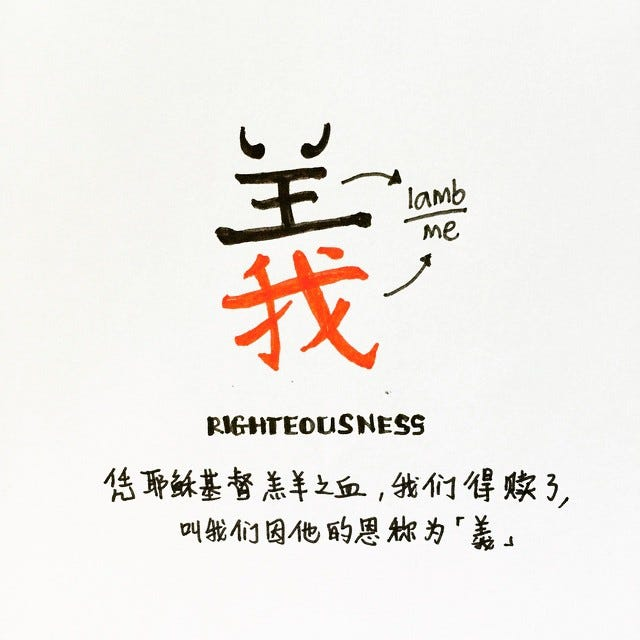 義
lamb
me
RIGHTEOUSNESS
凭耶稣基督羔羊之血,我们得赎了,
叫我们因他的恩称为「義」